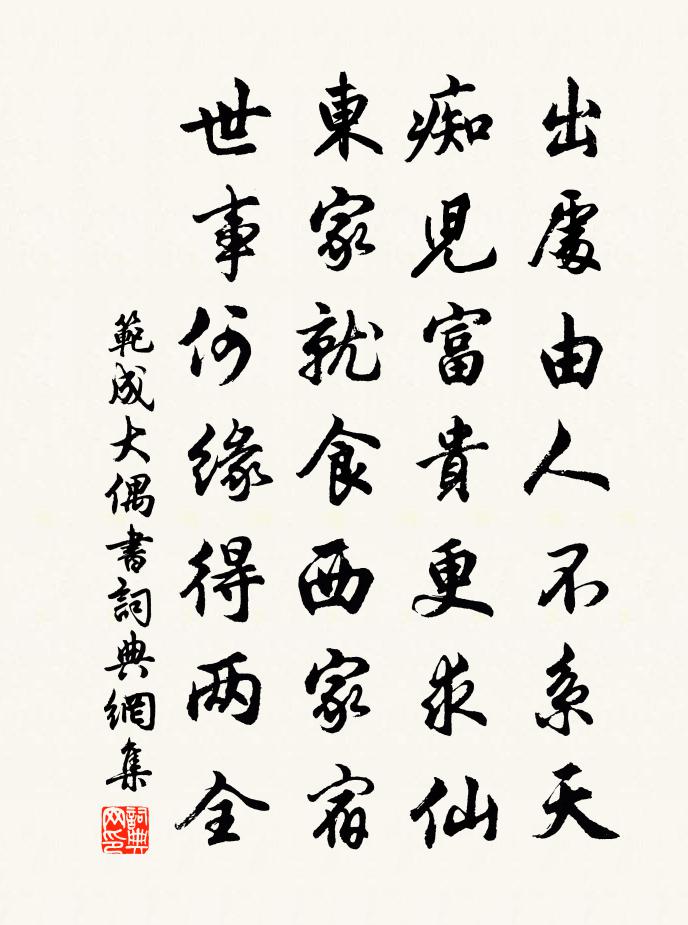 出處由人不系天
痴児富貴更求仙
東家就食西家宿
世事何緣得两全
範成大偶書詞典網集
詞典网印